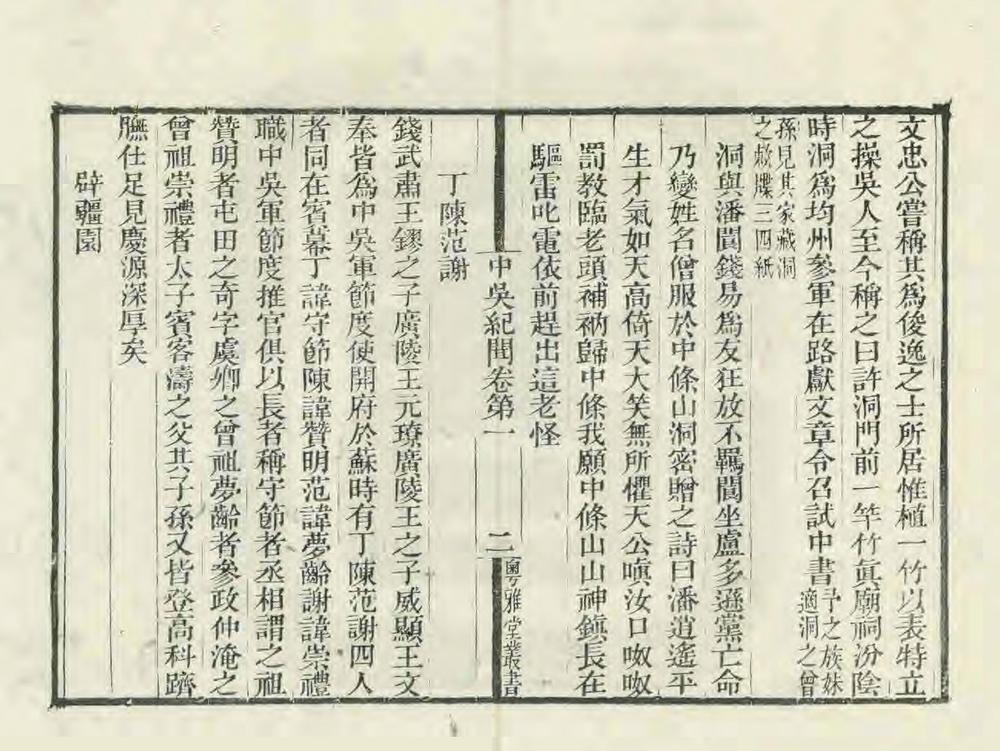 文忠公嘗稱其爲俊逸之士所居惟植一竹以表特立
之操吳人至今稱之曰許洞門前一竿竹眞廟祠汾陰
時洞爲均州參軍在路獻文章令召試中書予之族妹
適洞之曾
孫見其家藏洞
之敕牒三四紙
洞與潘閬錢易爲友狂放不羈閬坐盧多遜黨亡命
乃變姓名僧服於中條山洞密贈之詩曰潘逍遙平
生才氣如天高倚天大笑無所懼天公嗔汝口呶呶
罰教臨老頭補衲歸中條我願中條山山神鎮長在
驅雷叱電依前趕出這老怪
中吳紀聞卷第一
二
粵雅堂叢書
丁陳范謝
錢武肅王鏐之子廣陵王元璙廣陵王之子威顯王文
奉皆爲中吳軍節度使開府於蘇時有丁陳范謝四人
者同在賓幕丁諱守節陳諱贊明范諱夢齡謝諱崇禮
職中吳軍節度推官俱以長者稱守節者丞相謂之祖
贊明者屯田之奇字虞卿之曾祖夢齡者參政仲淹之
曾祖崇禮者太子賓客濤之父其子孫又皆登高科躋
膴仕足見慶源深厚矣
辟疆園